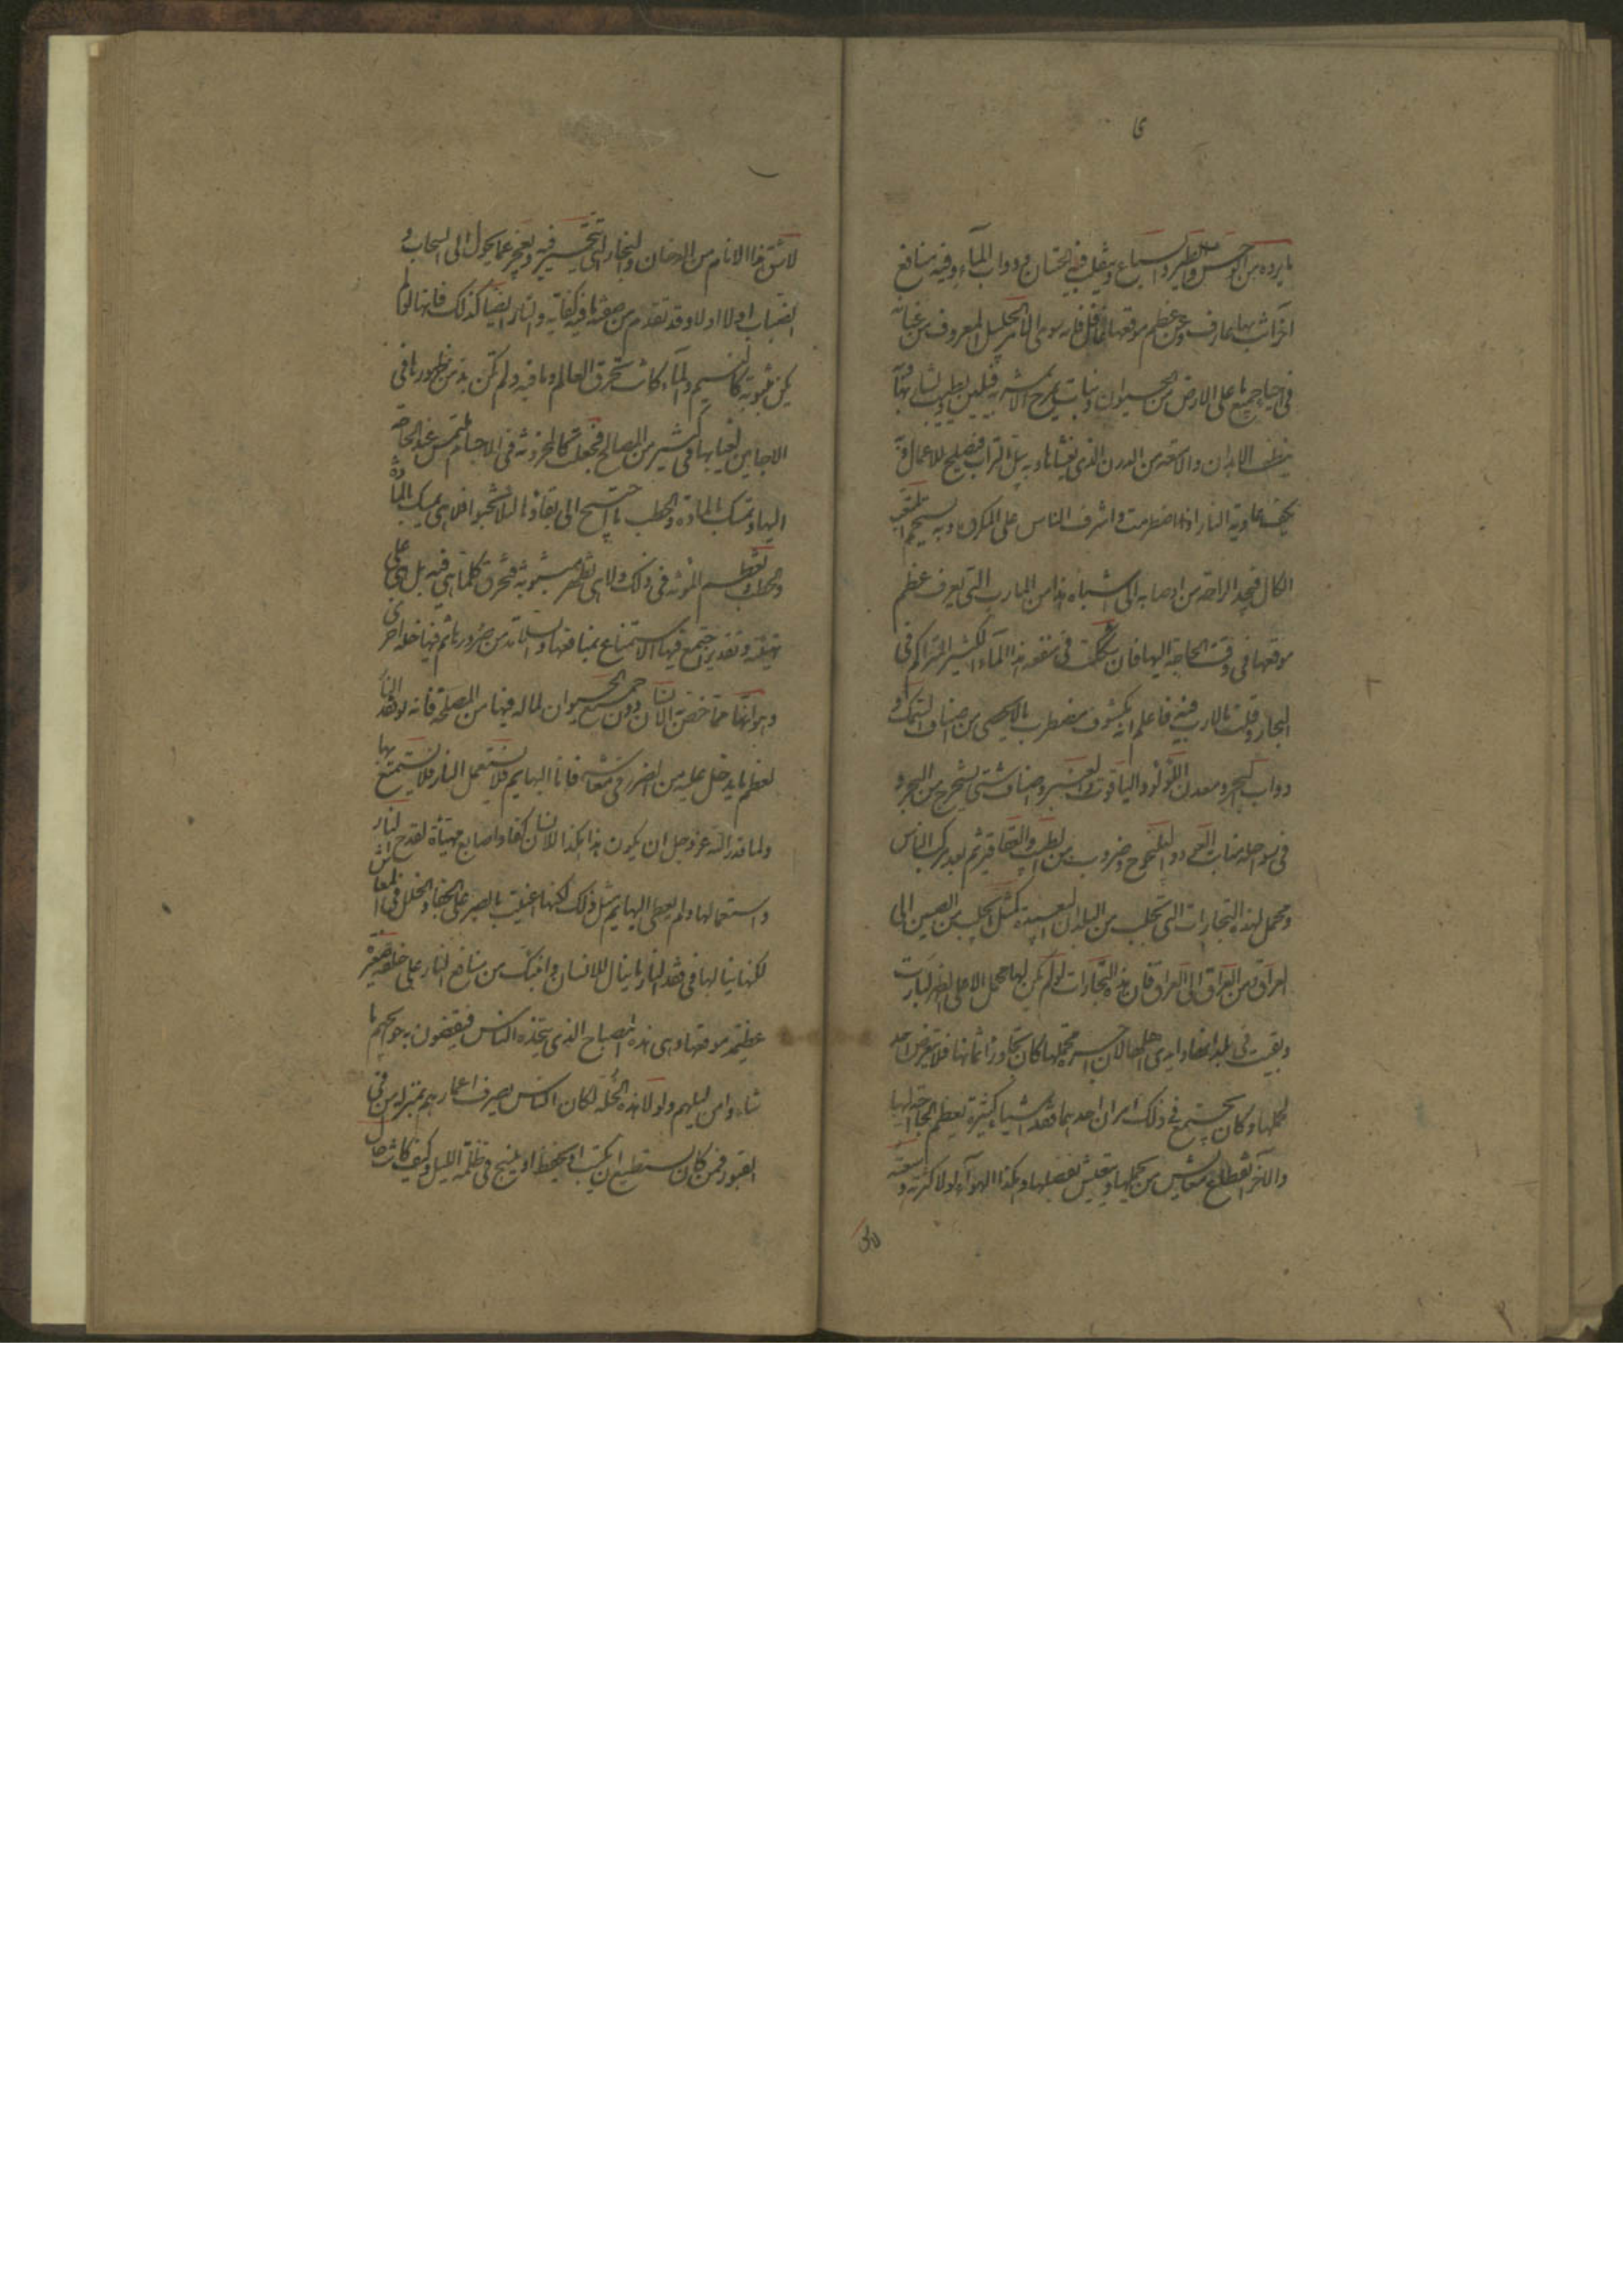 ى
ما يرده من الوحش والطير والسباع ويتقلب فيه الحيتان ودواب المآء وفيه منافع
اخر انت بها عارف وعن عظم موقعها غافل فانه سوى الامر الجليل المعروف من غنائه
فى احياء جميع ما على الارض من الحيوان والنبات يمزج بالاشربة فيلين ويطيب لشاربها وبه
ينظف الابدان والامتعة من الدرن الذى يغشاها وبه يبل التراب فيصلح للاعمال وبه
يكف عادية النار اذا اضطرمت واشرف الناس على المكروه وبه يستحم المتعب
الكال فيجد الراحة من اوصابه الى اشباه هذا من المارب التى يعرف عظم
موقعها فى وقت الحاجة اليها فان شككت فى منفعة هذا المآء الكثير المتراكم فى
البحار وقلت ما الارب فيه فاعلم انه مكتنف ومضطرب ما لا يحصى من اصناف السمك و
دواب البحر ومعدن اللؤلؤ والياقوت والعنبر واصناف شتى تستخرج من البحر و
فى سواحله منابت العود واليلنجوج وضروب من الطيب والعقاقير ثم بعد مركب الناس
ومحمل لهذه التجارات التى تجلب من البلدان البعيدة كمثل ما يجلب من الصين الى
العراق ومن العراق الى العراق فان هذه التجارات لو لم يكن لها محمل الا على الظهر لبارت
وبقيت فى بلدانها وايدى اهلها لان اجر حملها كان يتجاوز اثمانها فلا يتعرض احد
لحملها وكان يجتمع فى ذلك امران احدهما فقد اشياء كثيرة يعظم الحاجة اليها
والآخر انقطاع معاش من يحملها ويتعيش بفضلها وهكذا الهوآء لولا كثرته وسعته
لاختنق هذا الانام من الدخان والبخار التى يتحير فيه ويعجز عما يحول الى السحاب و
الضباب اولا اولا وقد تقدم من صفته ما فيه كفاية والنار ايضا كذلك فانها لو لم
يكن مبثوثة كالنسيم والمآء كانت تحرق العالم وما فيه ولم يكن بد من ظهورها فى
الاحايين لغنائها فى كثير من المصالح فجعلت كالمخزونة فى الاجسام تلتمس عند الحاجة
اليها وتمسك بالمادة والحطب ما احتيج الى بقائها لئلا تخبو فلا هى تمسك بالمادة
والحطب فتعظم المؤنة فى ذلك ولا هى تظهر مبثوثة فتحرق كلما هى فيه بل هى على
تهيئة وتقدير اجتمع فيها الاستمتاع بمنافعها والسلامة من ضررها ثم فيها خلة اخرى
وهى انها مما خص به الانسان دون جميع الحيوان لما له فيها من المصلحة فانه لو فقد النار
لعظم ما يدخل عليه من الضرر فى معاشه فاما البهايم فلا تستعمل النار ولا تستمتع بها
ولما قدر الله عز وجل ان يكون هذا هكذا خلق للانسان كفا واصابع مهيأة لقدح النار
واستعمالها ولم يعط البهايم مثل ذلك لكنها اعينت بالصبر على الجفاء والخلل فى المعاش
لكيلا ينالها فى فقد النار ما ينال الانسان وانبئك من منافع النار على خلقة صغيرة
عظيمة موقعها وهى هذه المصباح الذى يتخذه الناس فيقضون به حوايجهم ما
شاءوا من ليلهم ولولا هذه الخلة لكان الناس يصرف اعمارهم بمنزلة من فى
القبور فمن كان يستطيع ان يكتب او يحفظ او ينسج فى ظلمة الليل وكيف كانت حال